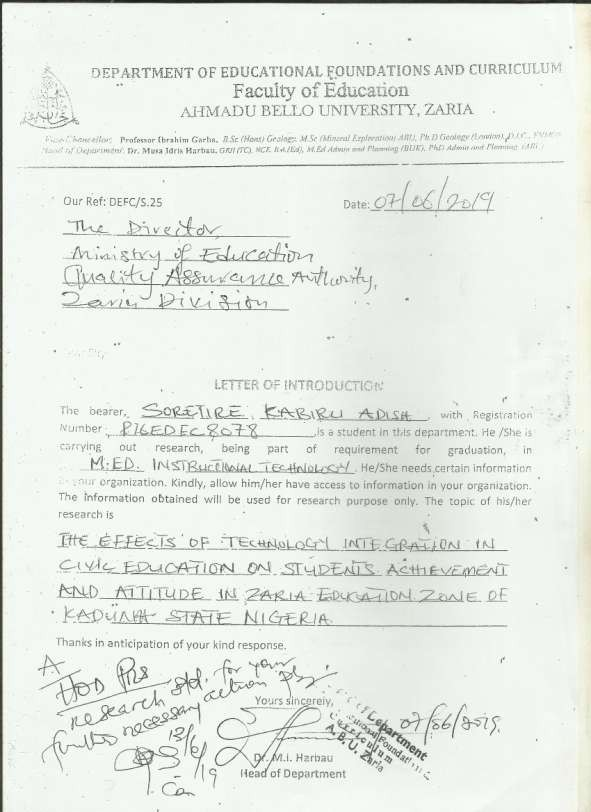 DEPARTMENT OF EDUCATIONAL FOUNDATIONS AND CURRICULUM
Faculty of Education
AHMADU BELLO UNIVERSITY, ZARIA
Vice-Chancellor: Professor Ibrahim Garba, B.Sc (Hons) Geology, M.Sc (Mineral Exploration) ABU, Ph.D Geology (London), D.I.C.,
Head of Department: Dr. Musa Idris Harbau, GRII (TC), NCE, B.A.(Ed), M.Ed Admin and Planning (BUK), PhD Admin and Planning (ABU)
Our Ref: DEFC/S.25
Date: 07/06/2019
The Director,
Ministry of Education
Quality Assurance Authority,
Zaria Division
LETTER OF INTRODUCTION
The bearer, SORETIRE KABIRU ADISA with Registration
Number, P16EDEC8078 is a student in this department. He /She is
carrying out research, being part of requirement for graduation, in
M.ED. INSTRUCTIONAL TECHNOLOGY. He/She needs certain information
your organization. Kindly, allow him/her have access to information in your organization.
The information obtained will be used for research purpose only. The topic of his/her
research is
THE EFFECTS OF TECHNOLOGY INTEGRATION IN
CIVIC EDUCATION ON STUDENTS ACHIEVEMENT
AND ATTITUDE IN ZARIA EDUCATION ZONE OF
KADUNA STATE NIGERIA.
Thanks in anticipation of your kind response.
A
HOD PRS
research for your
further necessary action pls
13/6/19
Yours sincerely,
07/06/2019
Department
Curriculum
A.B.U. Zaria
Dr. M.I. Harbau
Head of Department